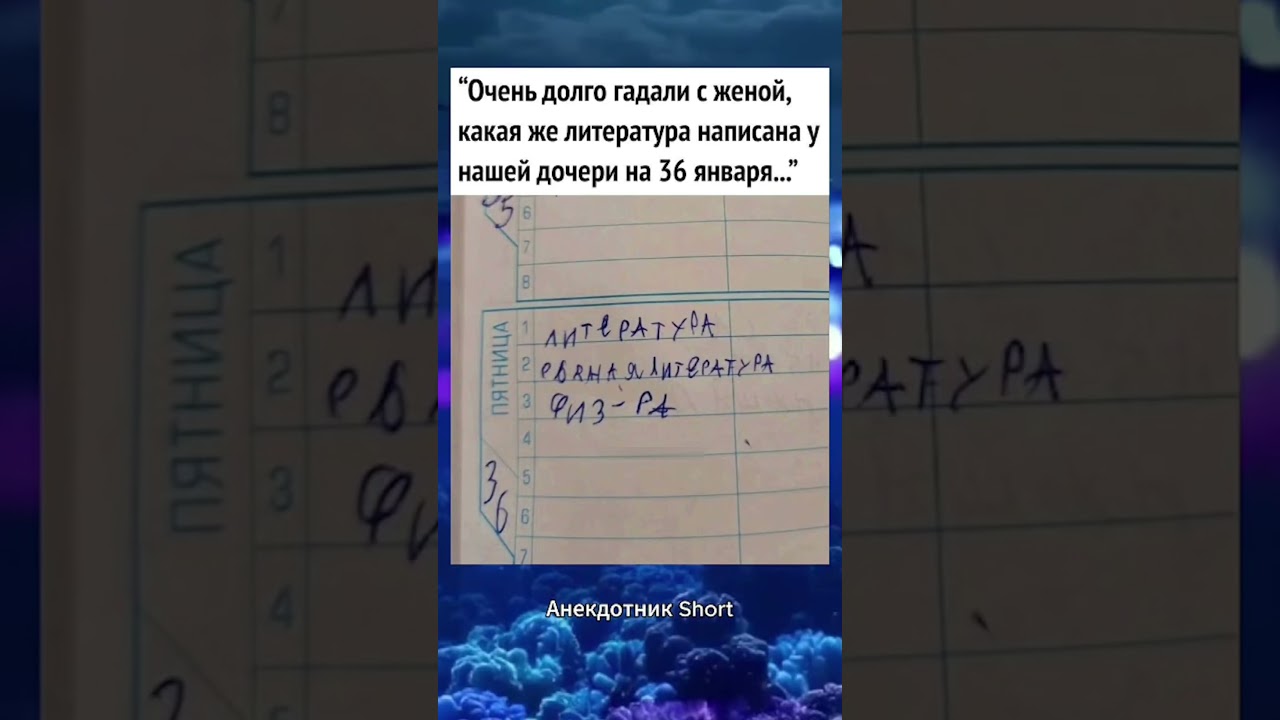 “Очень долго гадали с женой,
какая же литература написана у
нашей дочери на 36 января...”
8
35
6
7
8
ПЯТНИЦА
1 ЛИТЕРАТУРА
2 РВАНАЯ ЛИТЕРАТУРА
3 ФИЗ-РА
4
5
36
6
7
Анекдотник Short